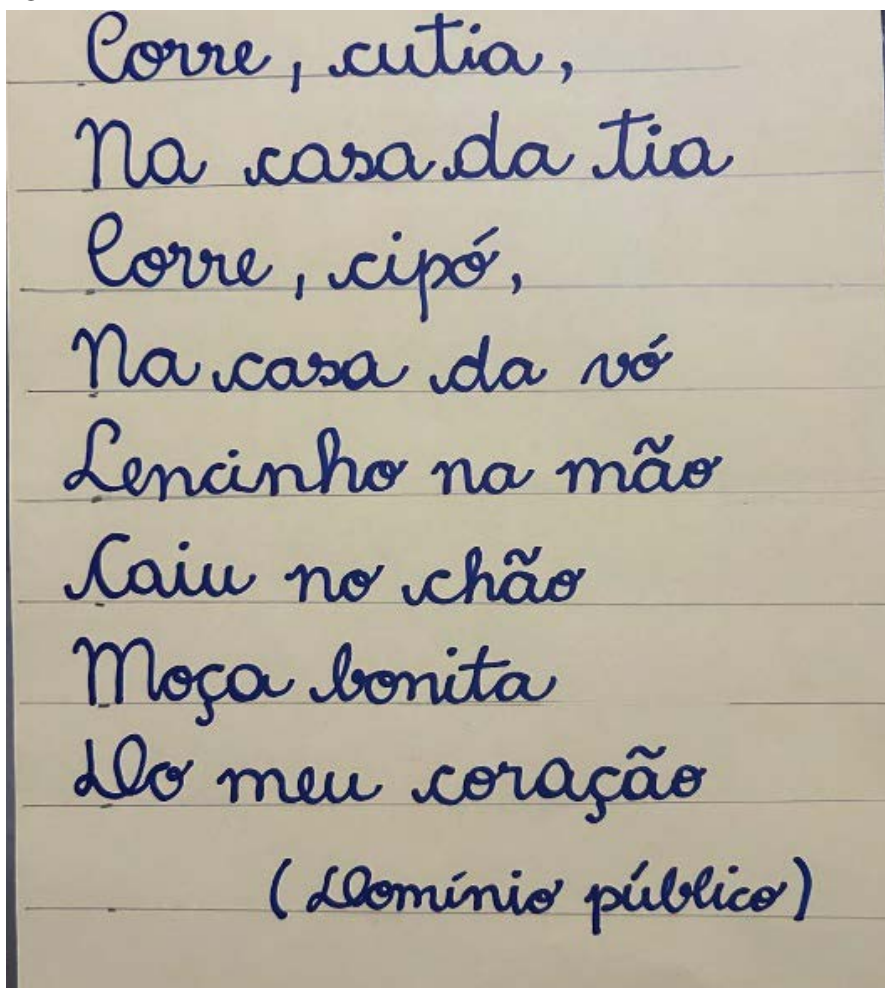 Corre, cutia,
Na casa da tia
Corre, cipó,
Na casa da vó
Lencinho na mão
Caiu no chão
Moça bonita
Do meu coração
(Domínio público)